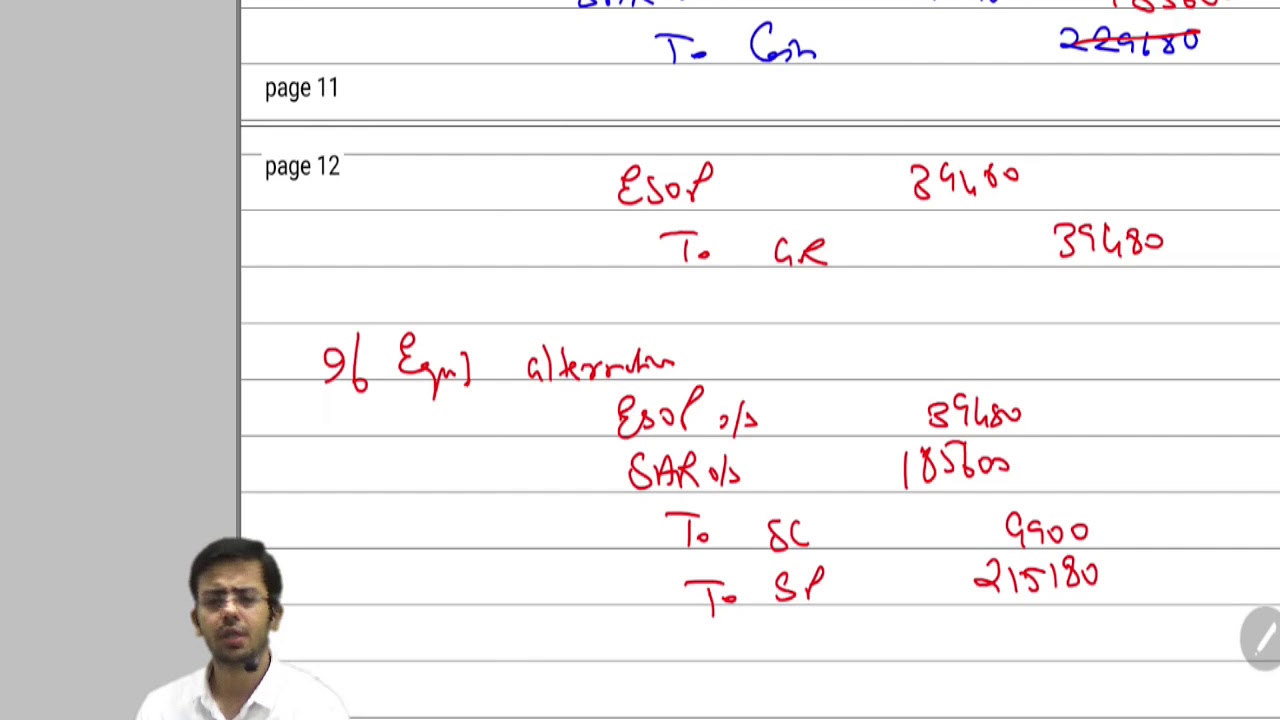 To Cash 229680
page 11
page 12
ESOP 39480
To GR 39480
If Equity alternative
ESOP o/s 39480
SAR o/s 185600
To SC 9900
To SP 215180